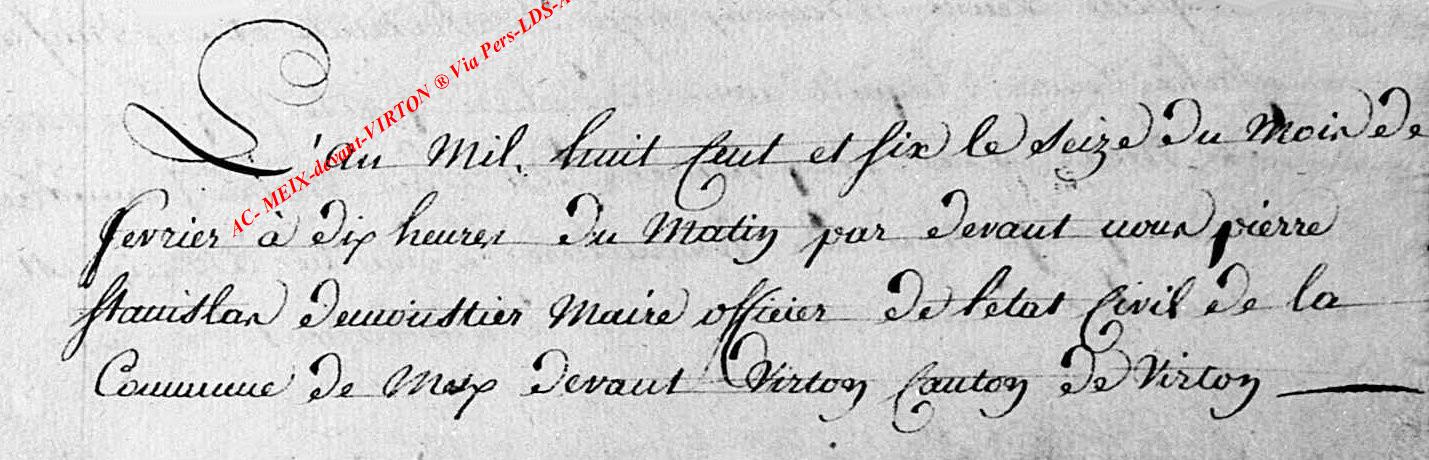 AC- MEIX-devant-VIRTON ® Via Pers-LDS-A
L'an Mil. huit Cent et six le seize du Mois de
fevrier à dix heures du Matin par devant nous pièrre
stanislas demoustier Maire officier de l'etat Civil de la
Commune de Meix devant Virton Canton de Virton